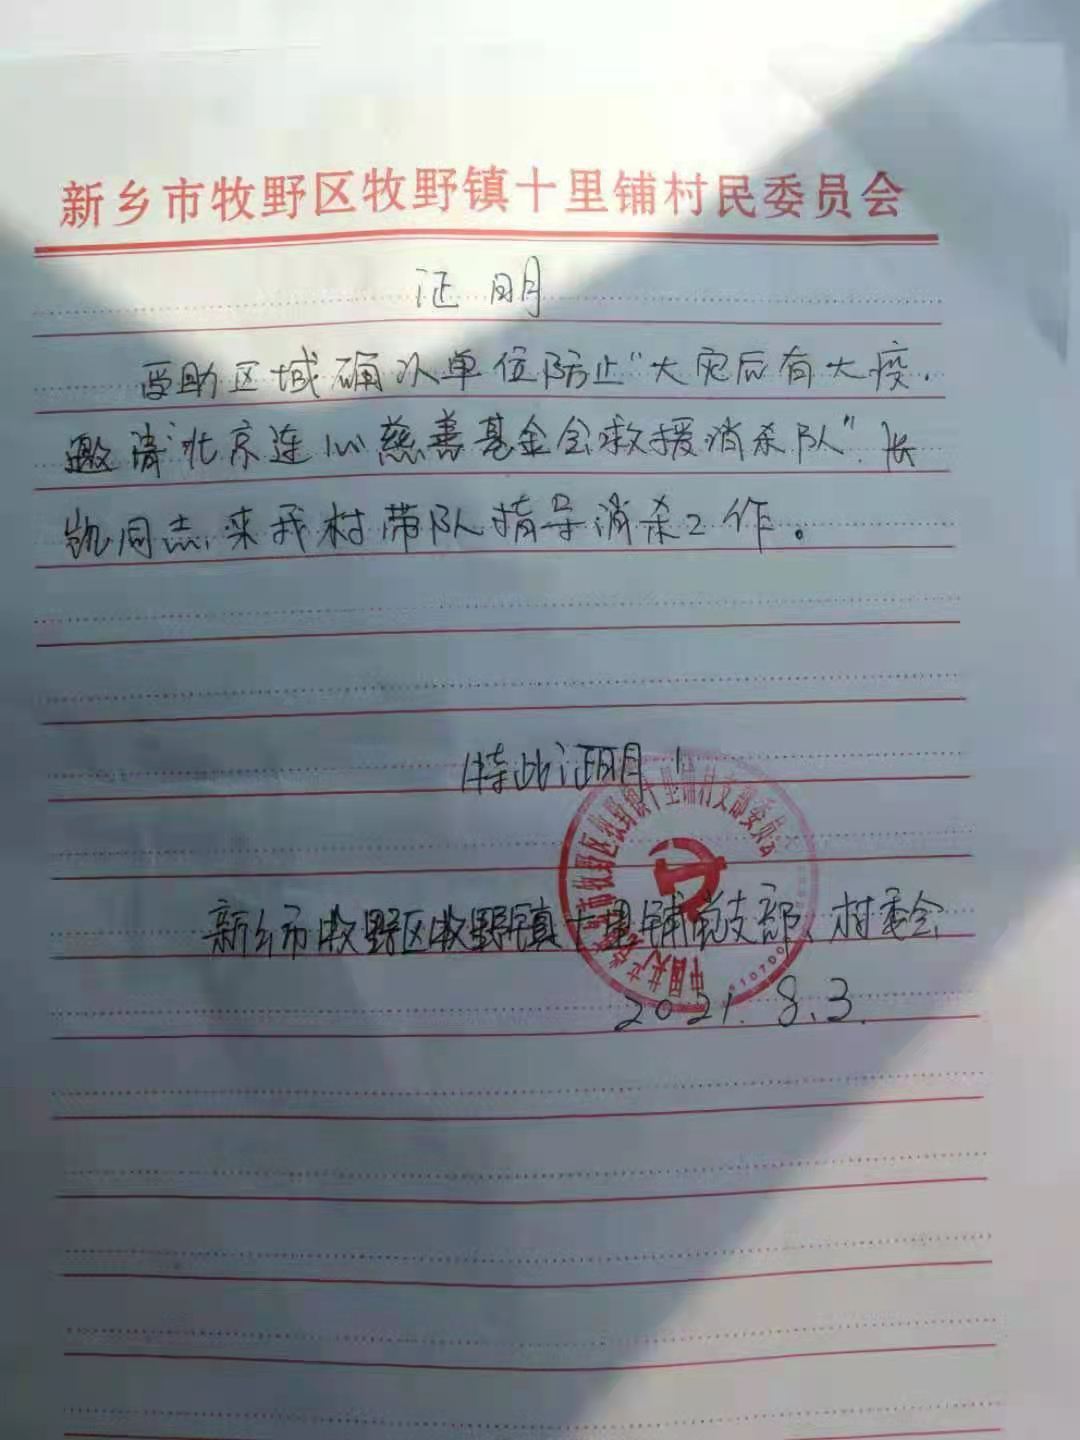 新乡市牧野区牧野镇十里铺村民委员会
证明
受助区域确认单位防止“大灾后有大疫.
邀请“北京连心慈善基金会救援消杀队”.长
凯同志,来我村带队指导消杀工作。
特此证明!
中国共产党新乡市牧野区牧野镇十里铺村支部委员会
新乡市牧野区牧野镇十里铺党支部、村委会
2021.8.3.